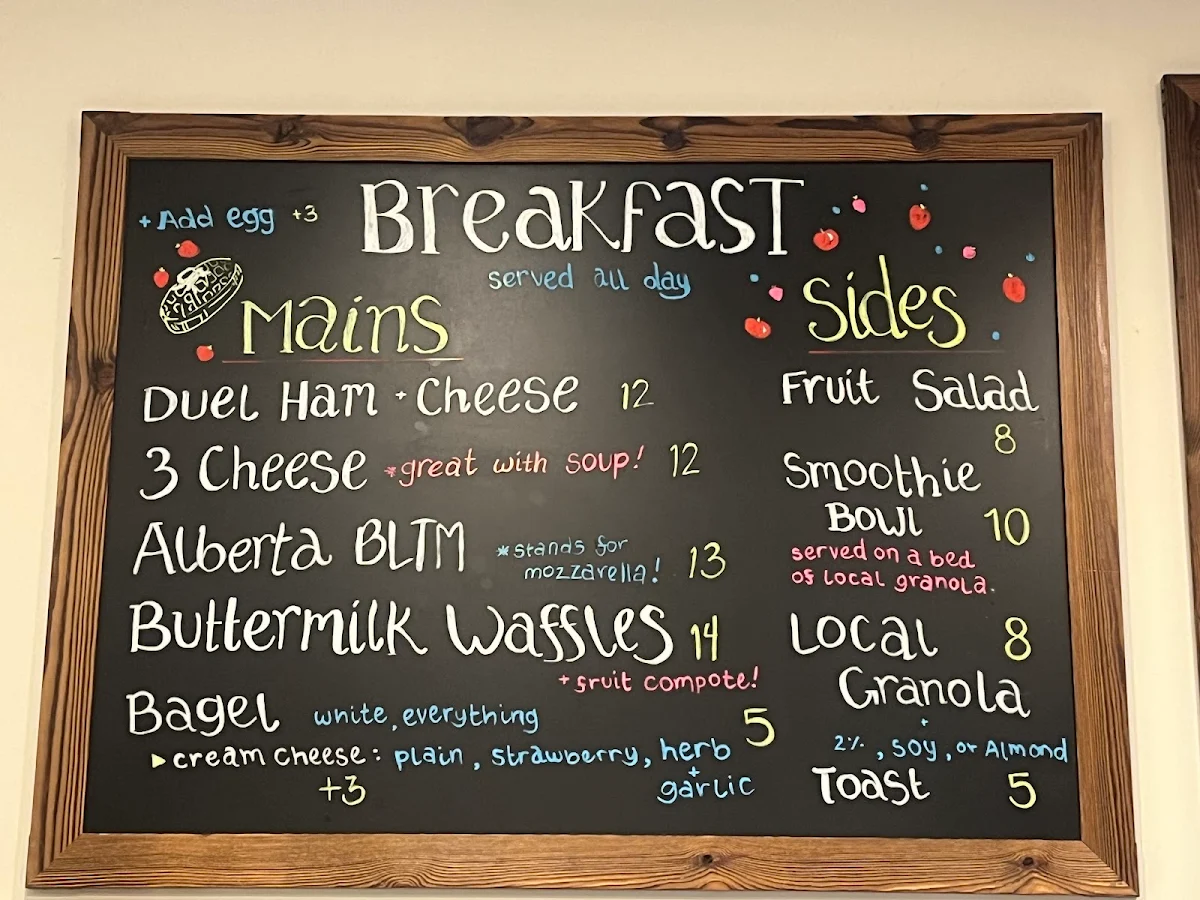 Breakfast
served all day
+ Add egg +3
Mains
Duel Ham + Cheese 12
3 Cheese *great with soup! 12
Alberta BLTM *stands for mozzarella! 13
Buttermilk Waffles 14
+ fruit compote!
Bagel white, everything 5
▸cream cheese: plain, strawberry, herb
+
+3 garlic
Sides
Fruit Salad
8
Smoothie
Bowl 10
served on a bed
of local granola.
Local 8
Granola
+
2%, soy, or Almond
Toast 5